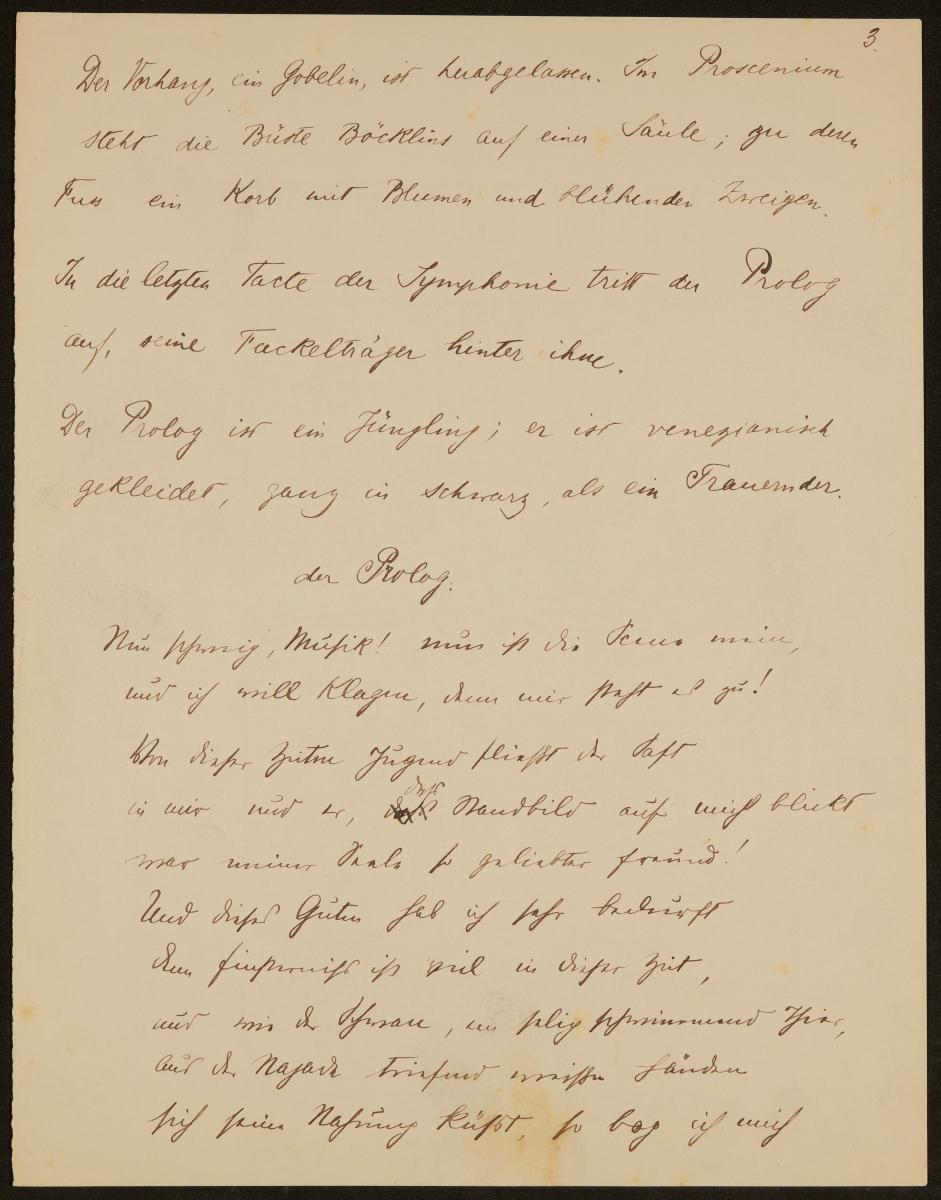 3.
Der Vorhang, ein Gobelin, ist herabgelassen. Im Proscenium
steht die Büste Böcklins auf einer Säule; zu deren
Fuss ein Korb mit Blumen und blühenden Zweigen.
In die letzten Tacte der Symphonie tritt der Prolog
auf, seine Fackelträger hinter ihm.
Der Prolog ist ein Jüngling; er ist venezianisch
gekleidet, ganz in schwarz, als ein Trauernder.
der Prolog.
Nun schweig, Musik! nun ist die Scene mein,
und ich will klagen, denn mir steht es zu!
Von dieser Zeiten Jugend fließt der Saft
in mir und er, dess Standbild auf mich blickt
war meiner Seele so geliebter Freund!
Und dieses Guten hab ich sehr bedurft
denn Finsterniss ist viel in dieser Zeit,
und wie der Schwan, ein selig schwimmend Thier,
aus der Najade triefend weißen Händen
sich seine Nahrung küßt, so bog ich mich